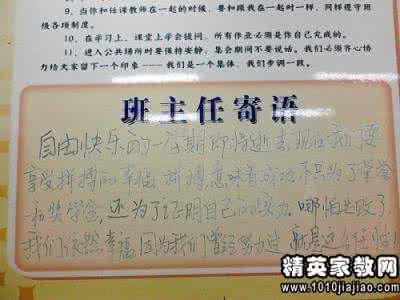 9、当你和任课教师在一起的时候，要和跟我在一起时一样，同样遵守班
级各项制度。
10、在学习上，课堂上学会提问，所有作业必须是你自己完成的。
11、进入公共场所时要保持安静；集会期间不要说话。我们必须齐心协
力给大家留下一个印象——我们是一个集体，我们步调一致。
班主任寄语
自由快乐的一星期即将逝去，现在我们要
享受拼搏的幸福 拼搏意味着成功 不只为了荣誉
和奖学金，还为了证明自己的实力，哪怕失败了，
我们依然幸福，因为我们曾经努力过
精英家教网
www.1010jiajiao.com